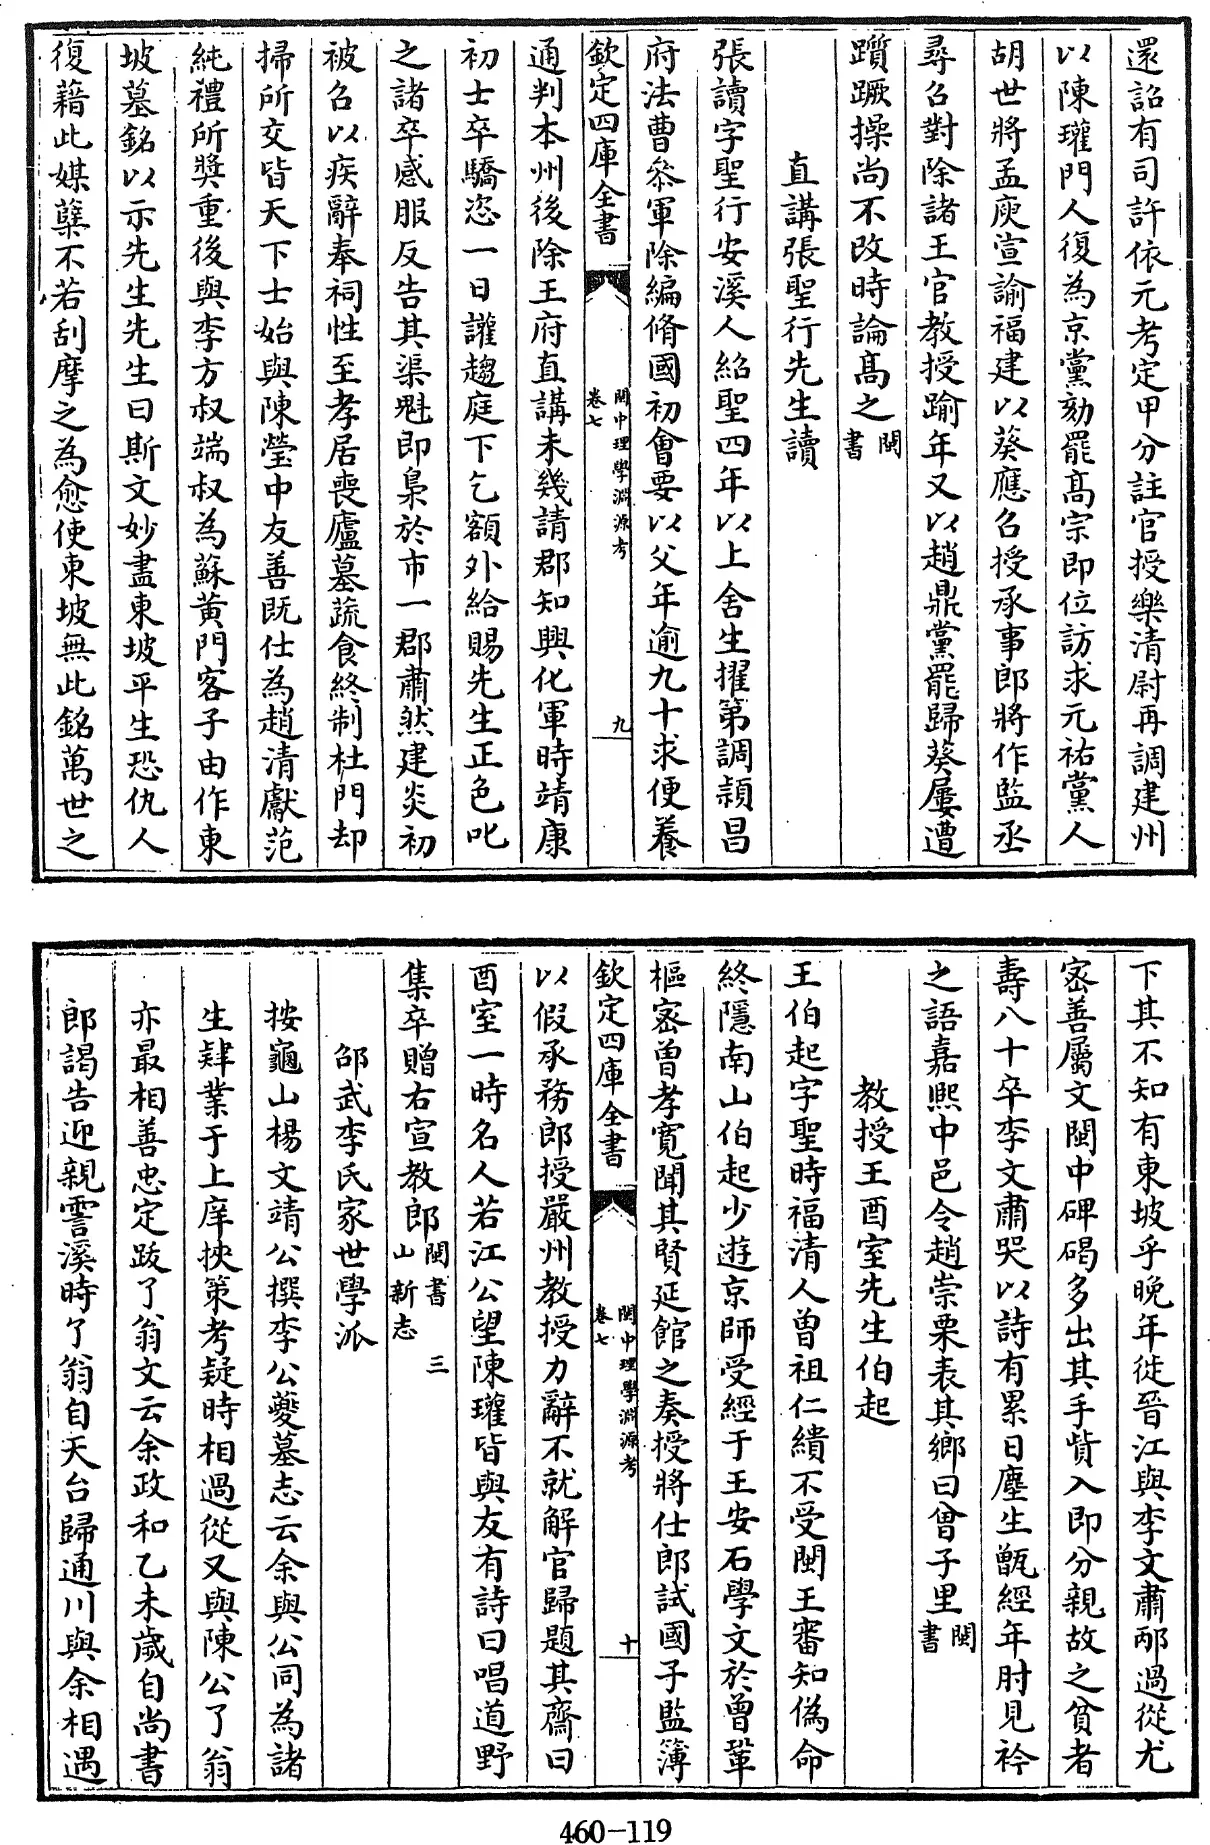 還詔有司許依元考定甲分註官授樂清尉再調建州
以陳瓘門人復為京黨劾罷高宗即位訪求元祐黨人
胡世將孟庾宣諭福建以葵應召授承事郎將作監丞
尋召對除諸王官教授踰年又以趙鼎黨罷歸葵屢遭
躓蹶操尚不改時論高之閩書
直講張聖行先生讀
張讀字聖行安溪人紹聖四年以上舍生擢第調潁昌
府法曹叅軍除編脩國初會要以父年逾九十求便養
欽定四庫全書
閩中理學淵源考
卷七
九
通判本州後除王府直講未幾請郡知興化軍時靖康
初士卒驕恣一日讙趨庭下乞額外給賜先生正色叱
之諸卒感服反告其渠魁即梟於市一郡肅然建炎初
被召以疾辭奉祠性至孝居喪廬墓蔬食終制杜門却
掃所交皆天下士始與陳瑩中友善既仕為趙清獻范
純禮所獎重後與李方叔端叔為蘇黃門客子由作東
坡墓銘以示先生先生曰斯文妙盡東坡平生恐仇人
復藉此媒糵不若刮摩之為愈使東坡無此銘萬世之
下其不知有東坡乎晚年徙晉江與李文肅邴過從尤
密善屬文閩中碑碣多出其手貲入即分親故之貧者
壽八十卒李文肅哭以詩有累日塵生甑經年肘見衿
之語嘉熙中邑令趙崇栗表其鄉曰曾子里閩書
教授王酉室先生伯起
王伯起字聖時福清人曾祖仁繢不受閩王審知偽命
終隱南山伯起少遊京師受經于王安石學文於曾鞏
樞密曾孝寬聞其賢延館之奏授將仕郎試國子監簿
欽定四庫全書
閩中理學淵源考
卷七
十
以假承務郎授嚴州教授力辭不就解官歸題其齋曰
酉室一時名人若江公望陳瓘皆與友有詩曰唱道野
集卒贈右宣教郎閩書 三山新志
邵武李氏家世學派
按龜山楊文靖公撰李公夔墓志云余與公同為諸
生肄業于上庠挾策考疑時相過從又與陳公了翁
亦最相善忠定跋了翁文云余政和乙未歲自尚書
郎謁告迎親霅溪時了翁自天台歸通川與余相遇
460-119